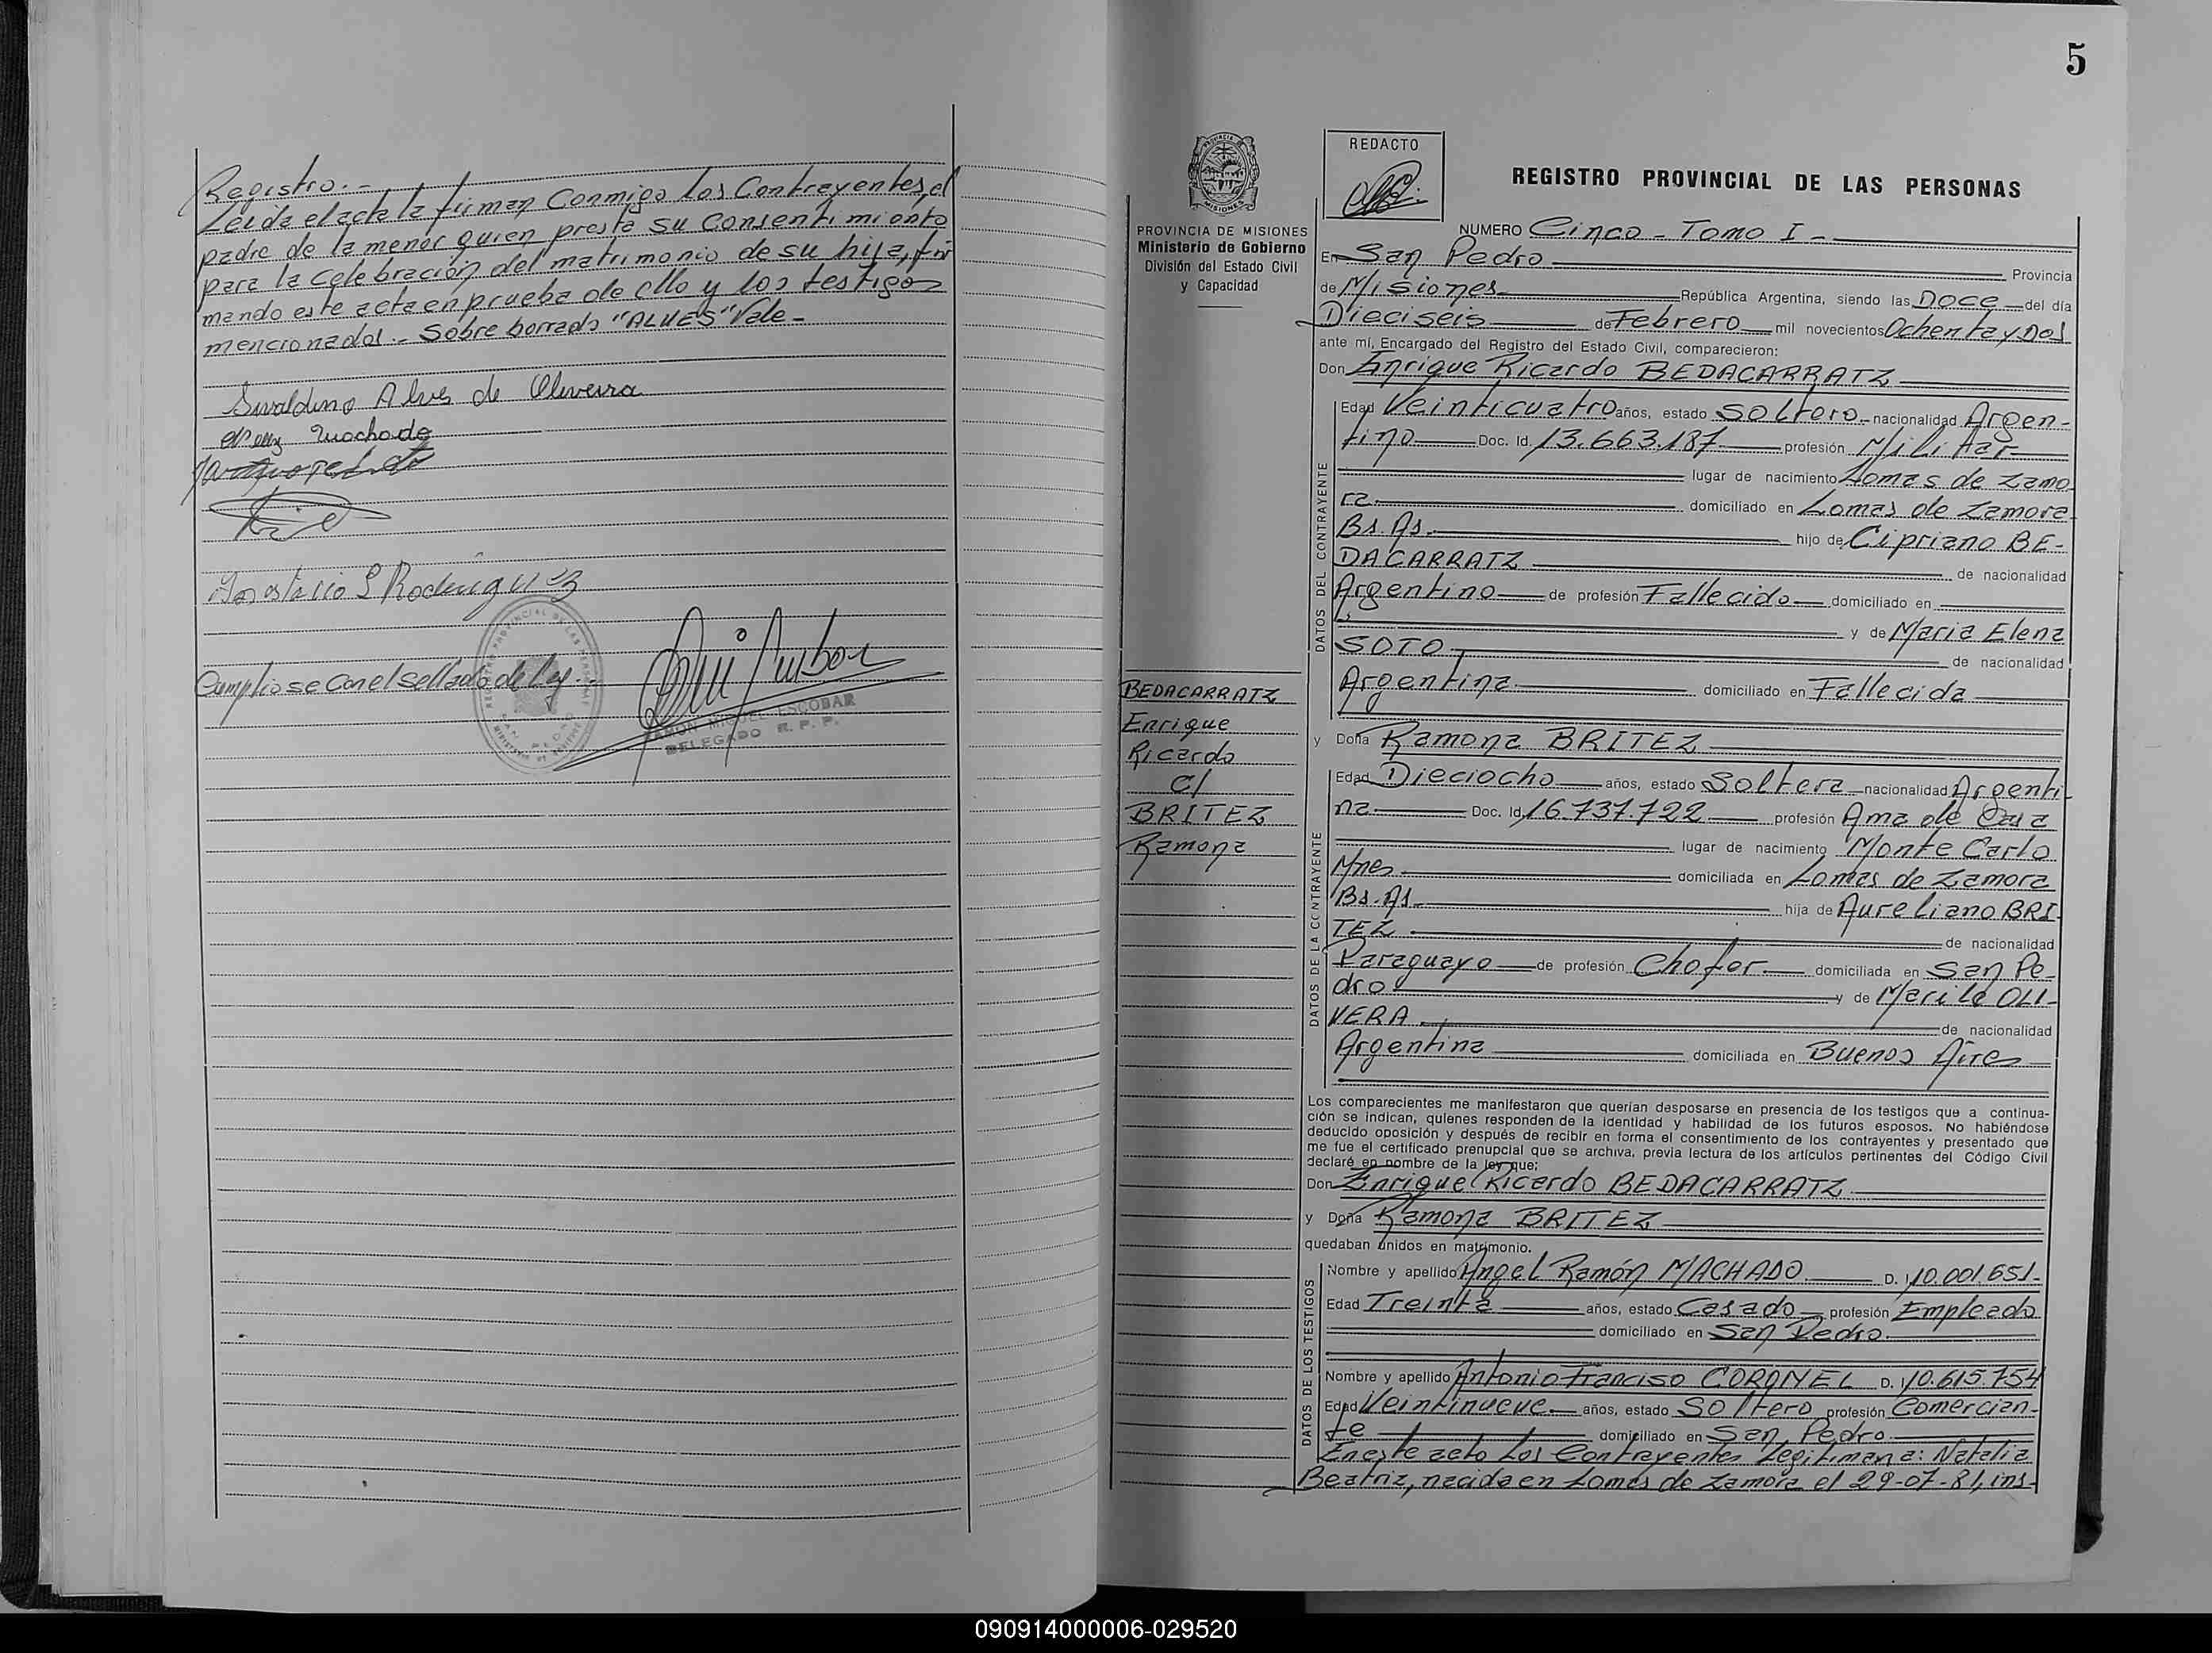 Registro.-
Leida el acta la firman Conmigo los Contrayentes, el
padre de la menor quien presta su consentimiento
para la celebración del matrimonio de su hija, fir
mando este acta en prueba de ello y los testigos
mencionados.- Sobre borrado "ALVES" Vale-
Sivaldino Alves de Oliveira
Nelly Machado
Rodriguez
Cumpliose con el sellado de Ley.-
RAMON MIGUEL ESCOBAR
DELEGADO R. P. P.
5
PROVINCIA DE MISIONES
Ministerio de Gobierno
División del Estado Civil
y Capacidad
BEDACARRATZ
Enrique
Ricardo
C/
BRITEZ
Ramona
REDACTO
REGISTRO PROVINCIAL DE LAS PERSONAS
NUMERO Cinco - Tomo I -
En San Pedro Provincia
de Misiones República Argentina, siendo las Doce del día
Dieciseis de Febrero mil novecientos Ochenta y Dos
ante mí, Encargado del Registro del Estado Civil, comparecieron:
Don Enrique Ricardo BEDACARRATZ
DATOS DEL CONTRAYENTE
Edad Veinticuatro años, estado Soltero nacionalidad Argen-
tino Doc. Id. 13.663.187 profesión Militar
lugar de nacimiento Lomas de Zamo
ra domiciliado en Lomas de Zamora
Bs. As. hijo de Cipriano BE-
DACARRATZ de nacionalidad
Argentino de profesión Fallecido domiciliado en
y de Maria Elena
SOTO de nacionalidad
Argentina domiciliado en Fallecida
y Doña Ramona BRITEZ
DATOS DE LA CONTRAYENTE
Edad Dieciocho años, estado Soltera nacionalidad Argenti-
na Doc. Id. 16.737.722 profesión Ama de Casa
lugar de nacimiento Monte Carlo
Mnes domiciliada en Lomas de Zamora
Bs. As. hija de Aureliano BRI-
TEZ de nacionalidad
Paraguayo de profesión Chofer domiciliada en San Pe-
dro y de Marila OLI-
VERA de nacionalidad
Argentina domiciliada en Buenos Aires
Los comparecientes me manifestaron que querían desposarse en presencia de los testigos que a continua-
ción se indican, quienes responden de la identidad y habilidad de los futuros esposos. No habiéndose
deducido oposición y después de recibir en forma el consentimiento de los contrayentes y presentado que
me fue el certificado prenupcial que se archiva, previa lectura de los artículos pertinentes del Código Civil
declaré en nombre de la ley que:
Don Enrique Ricardo BEDACARRATZ
y Doña Ramona BRITEZ
quedaban unidos en matrimonio.
DATOS DE LOS TESTIGOS
Nombre y apellido Angel Ramón MACHADO D. I. 10.001.651-
Edad Treinta años, estado Casado profesión Empleado
domiciliado en San Pedro
Nombre y apellido Antonio Franciso CORONEL D. I. 10.615.754
Edad Veintinueve años, estado Soltero profesión Comercian-
te domiciliado en San Pedro
En este acto los Contrayentes Legitiman a: Natalia
Beatriz, nacida en Lomas de Zamora el 29-07-81, ins-
090914000006-029520